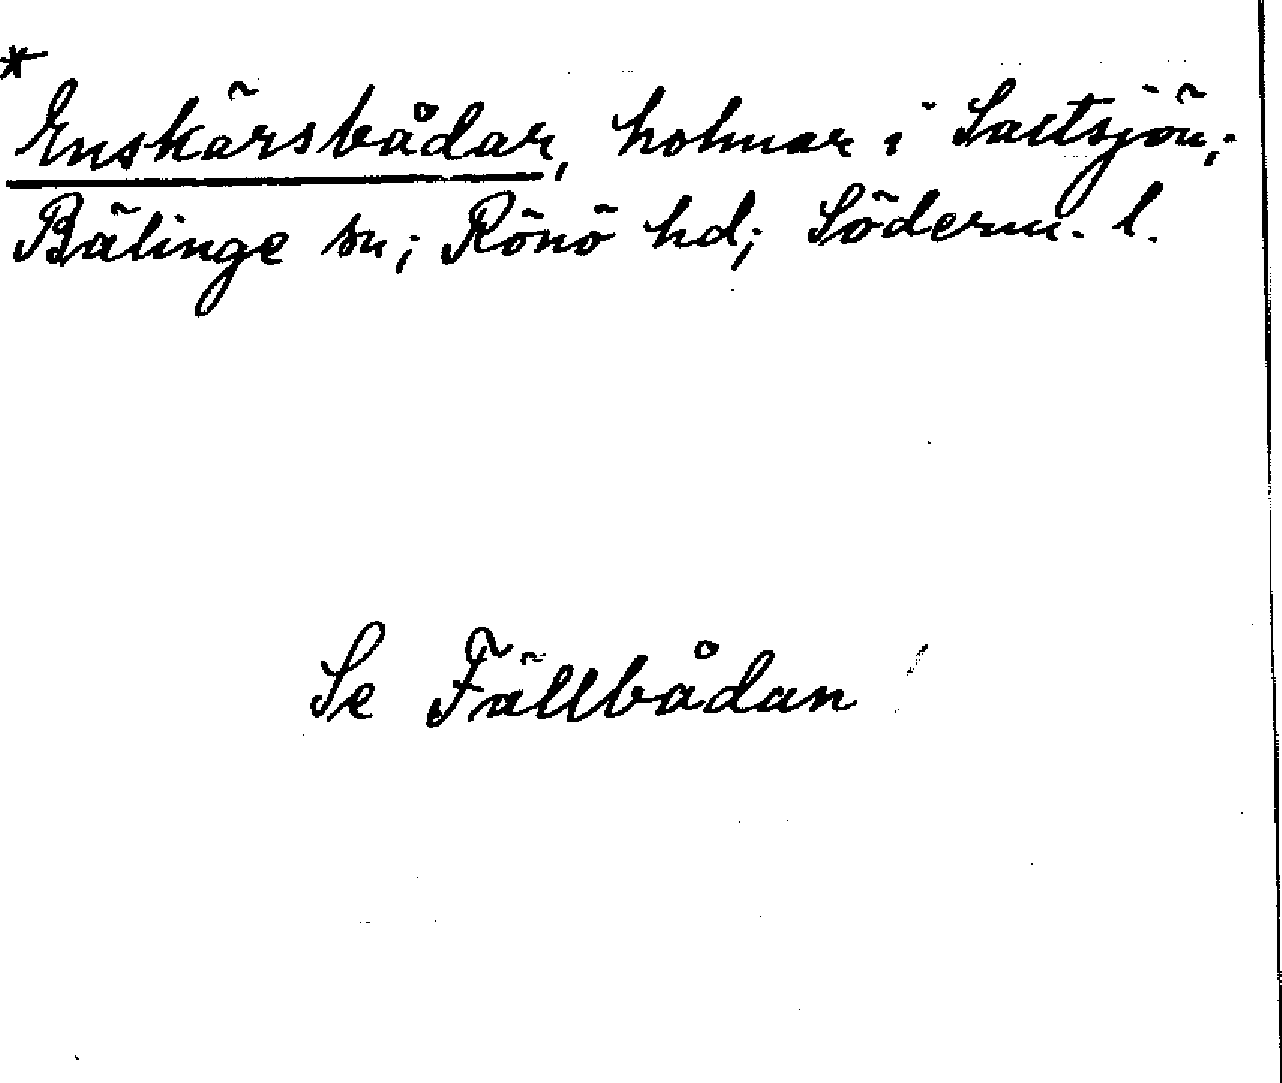 * Enskärsbådar, holmar i Saltsjön;
Bälinge sn; Rönö hd; Söderm. l.
Se Fällbådan